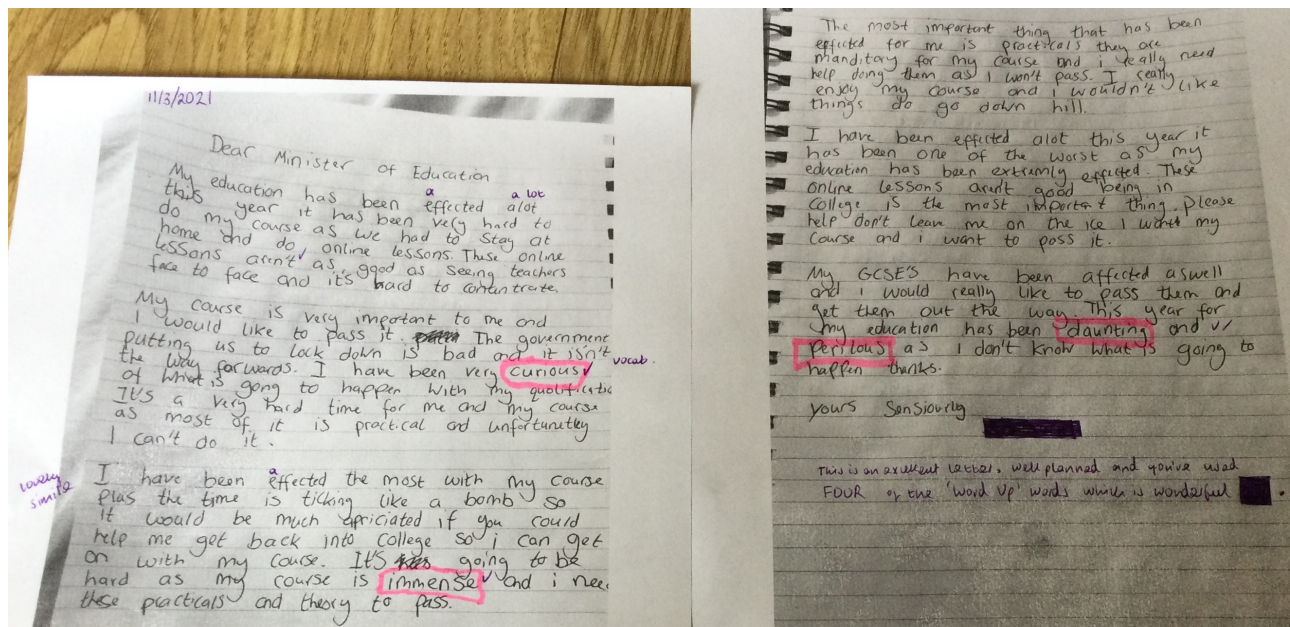 11/3/2021
Dear Minister of Education
a a lot
My education has been effected alot
this year it has been very hard to
do my course as we had to stay at
home and do online lessons. These online
lessons aren't as good as seeing teachers
face to face and it's hard to contentrate.
My course is very important to me and
I would like to pass it. The government
putting us to lock down is bad and it isn't
vocab.
the way forwards. I have been very curious
of what is gong to happen with my qualificatio
It's a very hard time for me and my course
as most of it is practical and unfortunetley
I can't do it.
lovely
simile
a
I have been effected the most with my course
plas the time is ticking like a bomb so
it would be much apriciated if you could
help me get back into college so i can get
on with my course. It's going to be
hard as my course is immense and i need
these practicals and theory to pass.
The most important thing that has been
effected for me is practicals they are
manditory for my course and i really need
help doing them as I won't pass. I really
enjoy my course and i wouldn't like
things do go down hill.
I have been effected alot this year it
has been one of the worst as my
education has been extremly effected. These
online lessons aren't good being in
college is the most important thing. Please
help don't leave me on the ice I want my
course and i want to pass it.
My GCSE'S have been affected aswell
and i would really like to pass them and
get them out the way. This year for
my education has been daunting and
perilous as I don't know what is going to
happen thanks.
yours Sensiourly
This is an excellent letter, well planned and you've used
FOUR of the 'Word Up' words which is wonderful .